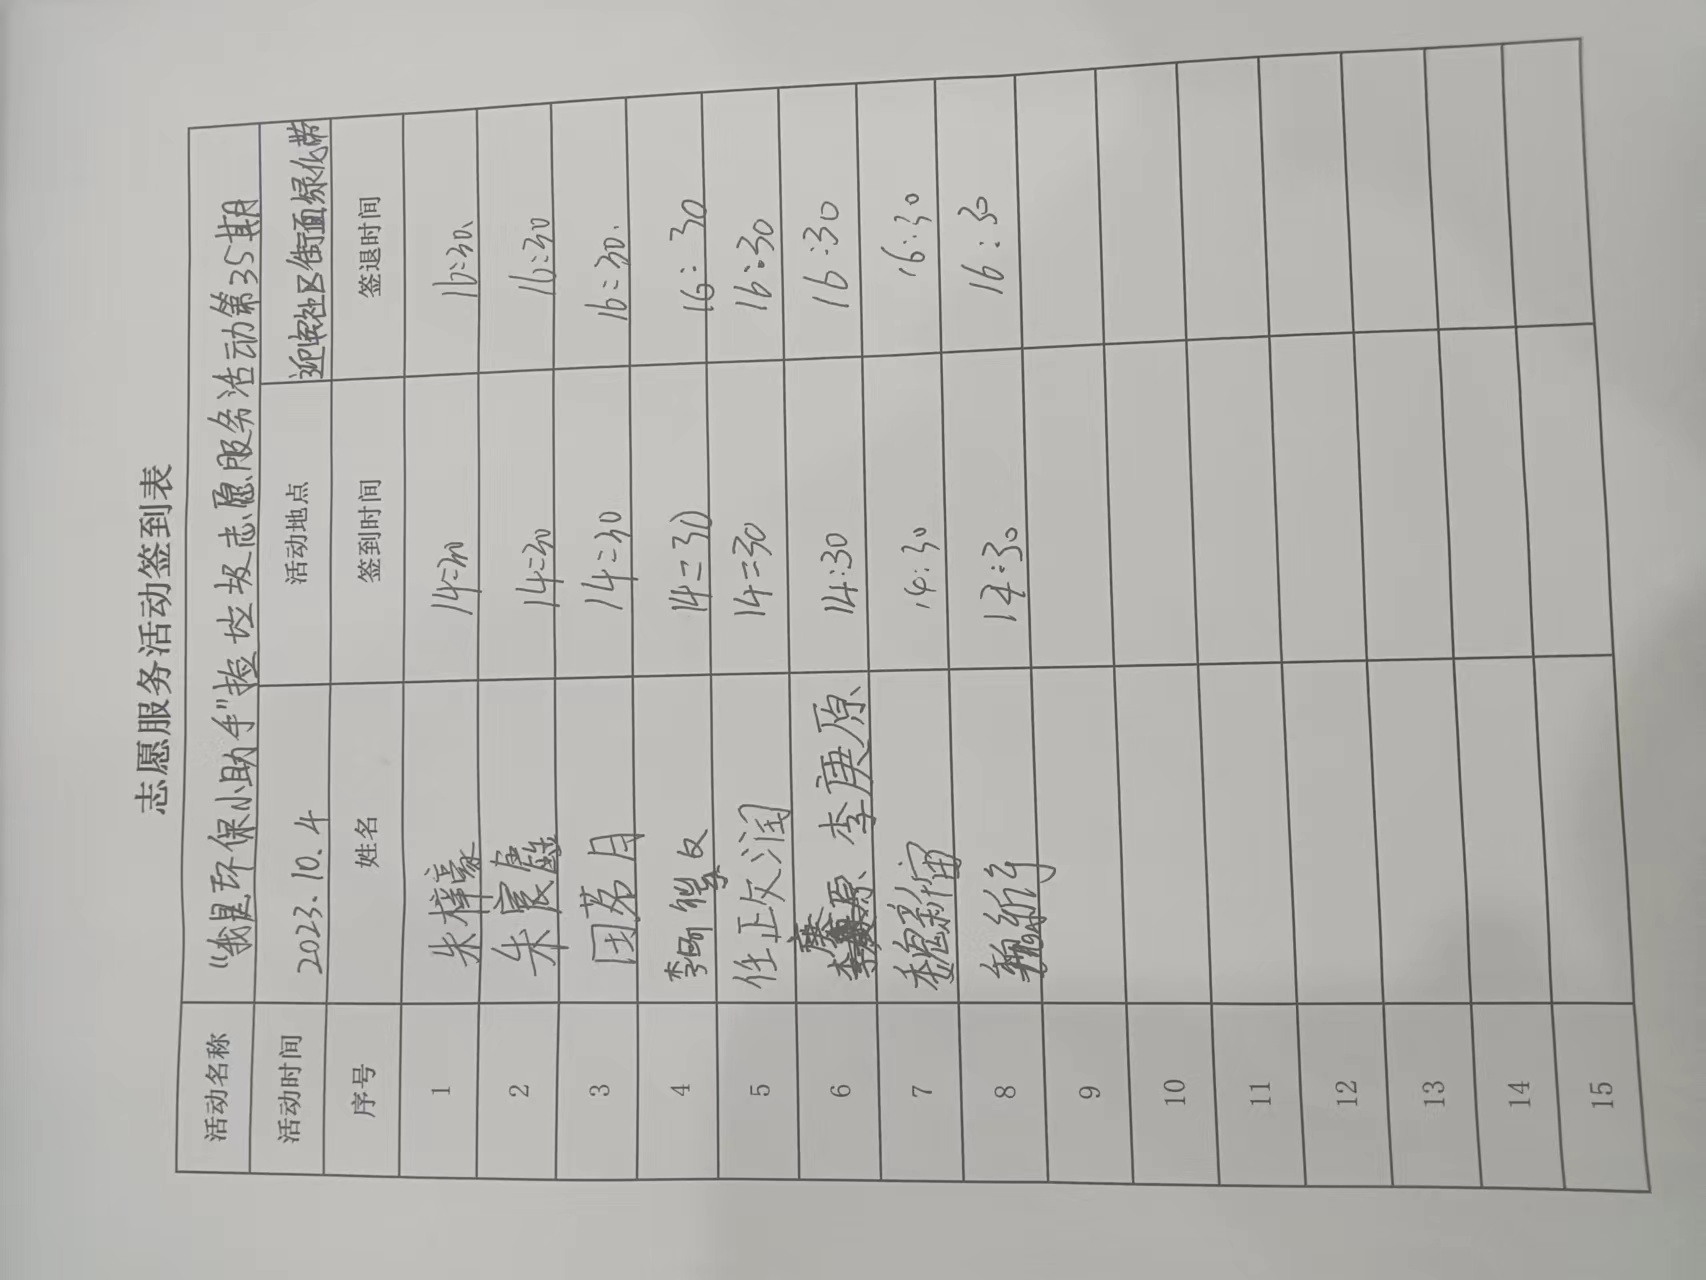 志愿服务活动签到表
活动名称 “我是环保小助手”捡垃圾志愿服务活动第35期
活动时间 2023.10.4 活动地点 迎宾社区街面绿化带
序号 姓名 签到时间 签退时间
1 朱梓豪 14:30 16:30
2 朱宸 14:30 16:30
3 田荔月 14:30 16:30.
4 李 14:30 16:30
5 任正汶润 14:30 16:30
6 李庚原 14:30 16:30
7 魏彩宙 14:30 16:30
8 14:30 16:30
9
10
11
12
13
14
15